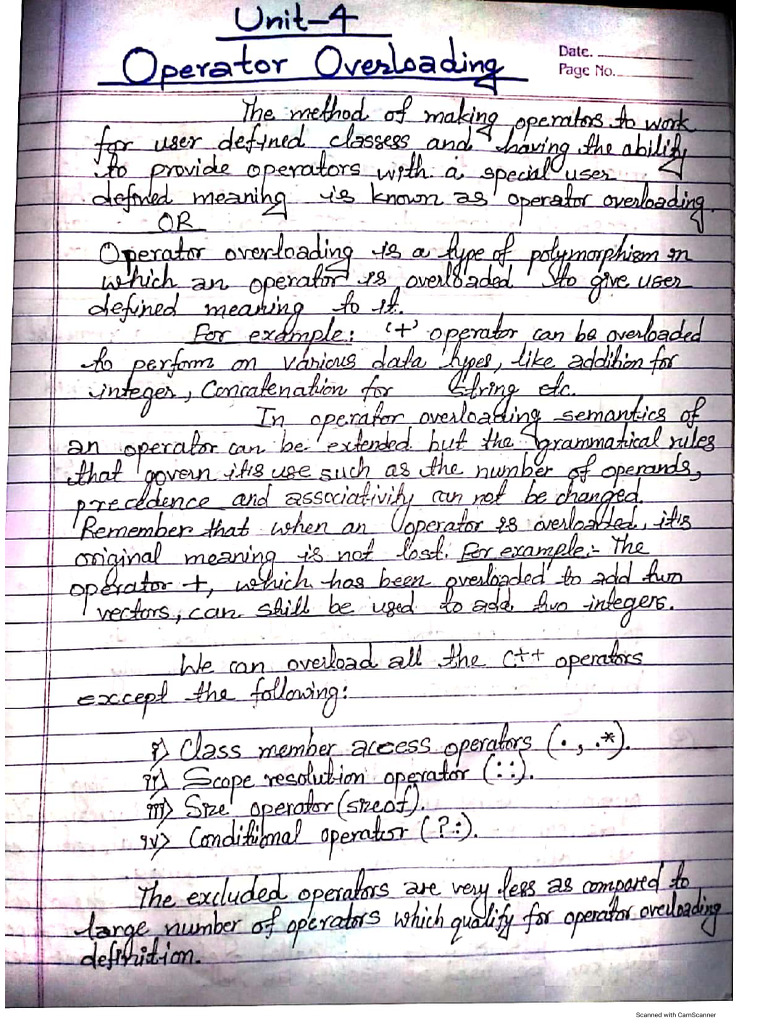 Unit-4
Operator Overloading
Date.
Page No.
The method of making operators to work
for user defined classess and having the ability
to provide operators with a special user
defined meaning is known as operator overloading.
OR
Operator overloading is a type of polymorphism in
which an operator is overloaded to give user
defined meaning to it.
For example: '+' operator can be overloaded
to perform on various data types, like addition for
integer, Concatenation for String etc.
In operator overloading semantics of
an operator can be extended but the grammatical rules
that govern it's use such as the number of operands,
precedence and associativity can not be changed.
Remember that when an operator is overloaded, it's
original meaning is not lost. For example:- The
operator +, which has been overloaded to add two
vectors, can still be used to add two integers.
We can overload all the C++ operators
except the following:
i) Class member access operators (., .*).
ii) Scope resolution operator (::).
iii) Size operator (sizeof).
iv) Conditional operator (?:).
The excluded operators are very less as compared to
large number of operators which qualify for operator overloading
definition.
Scanned with CamScanner